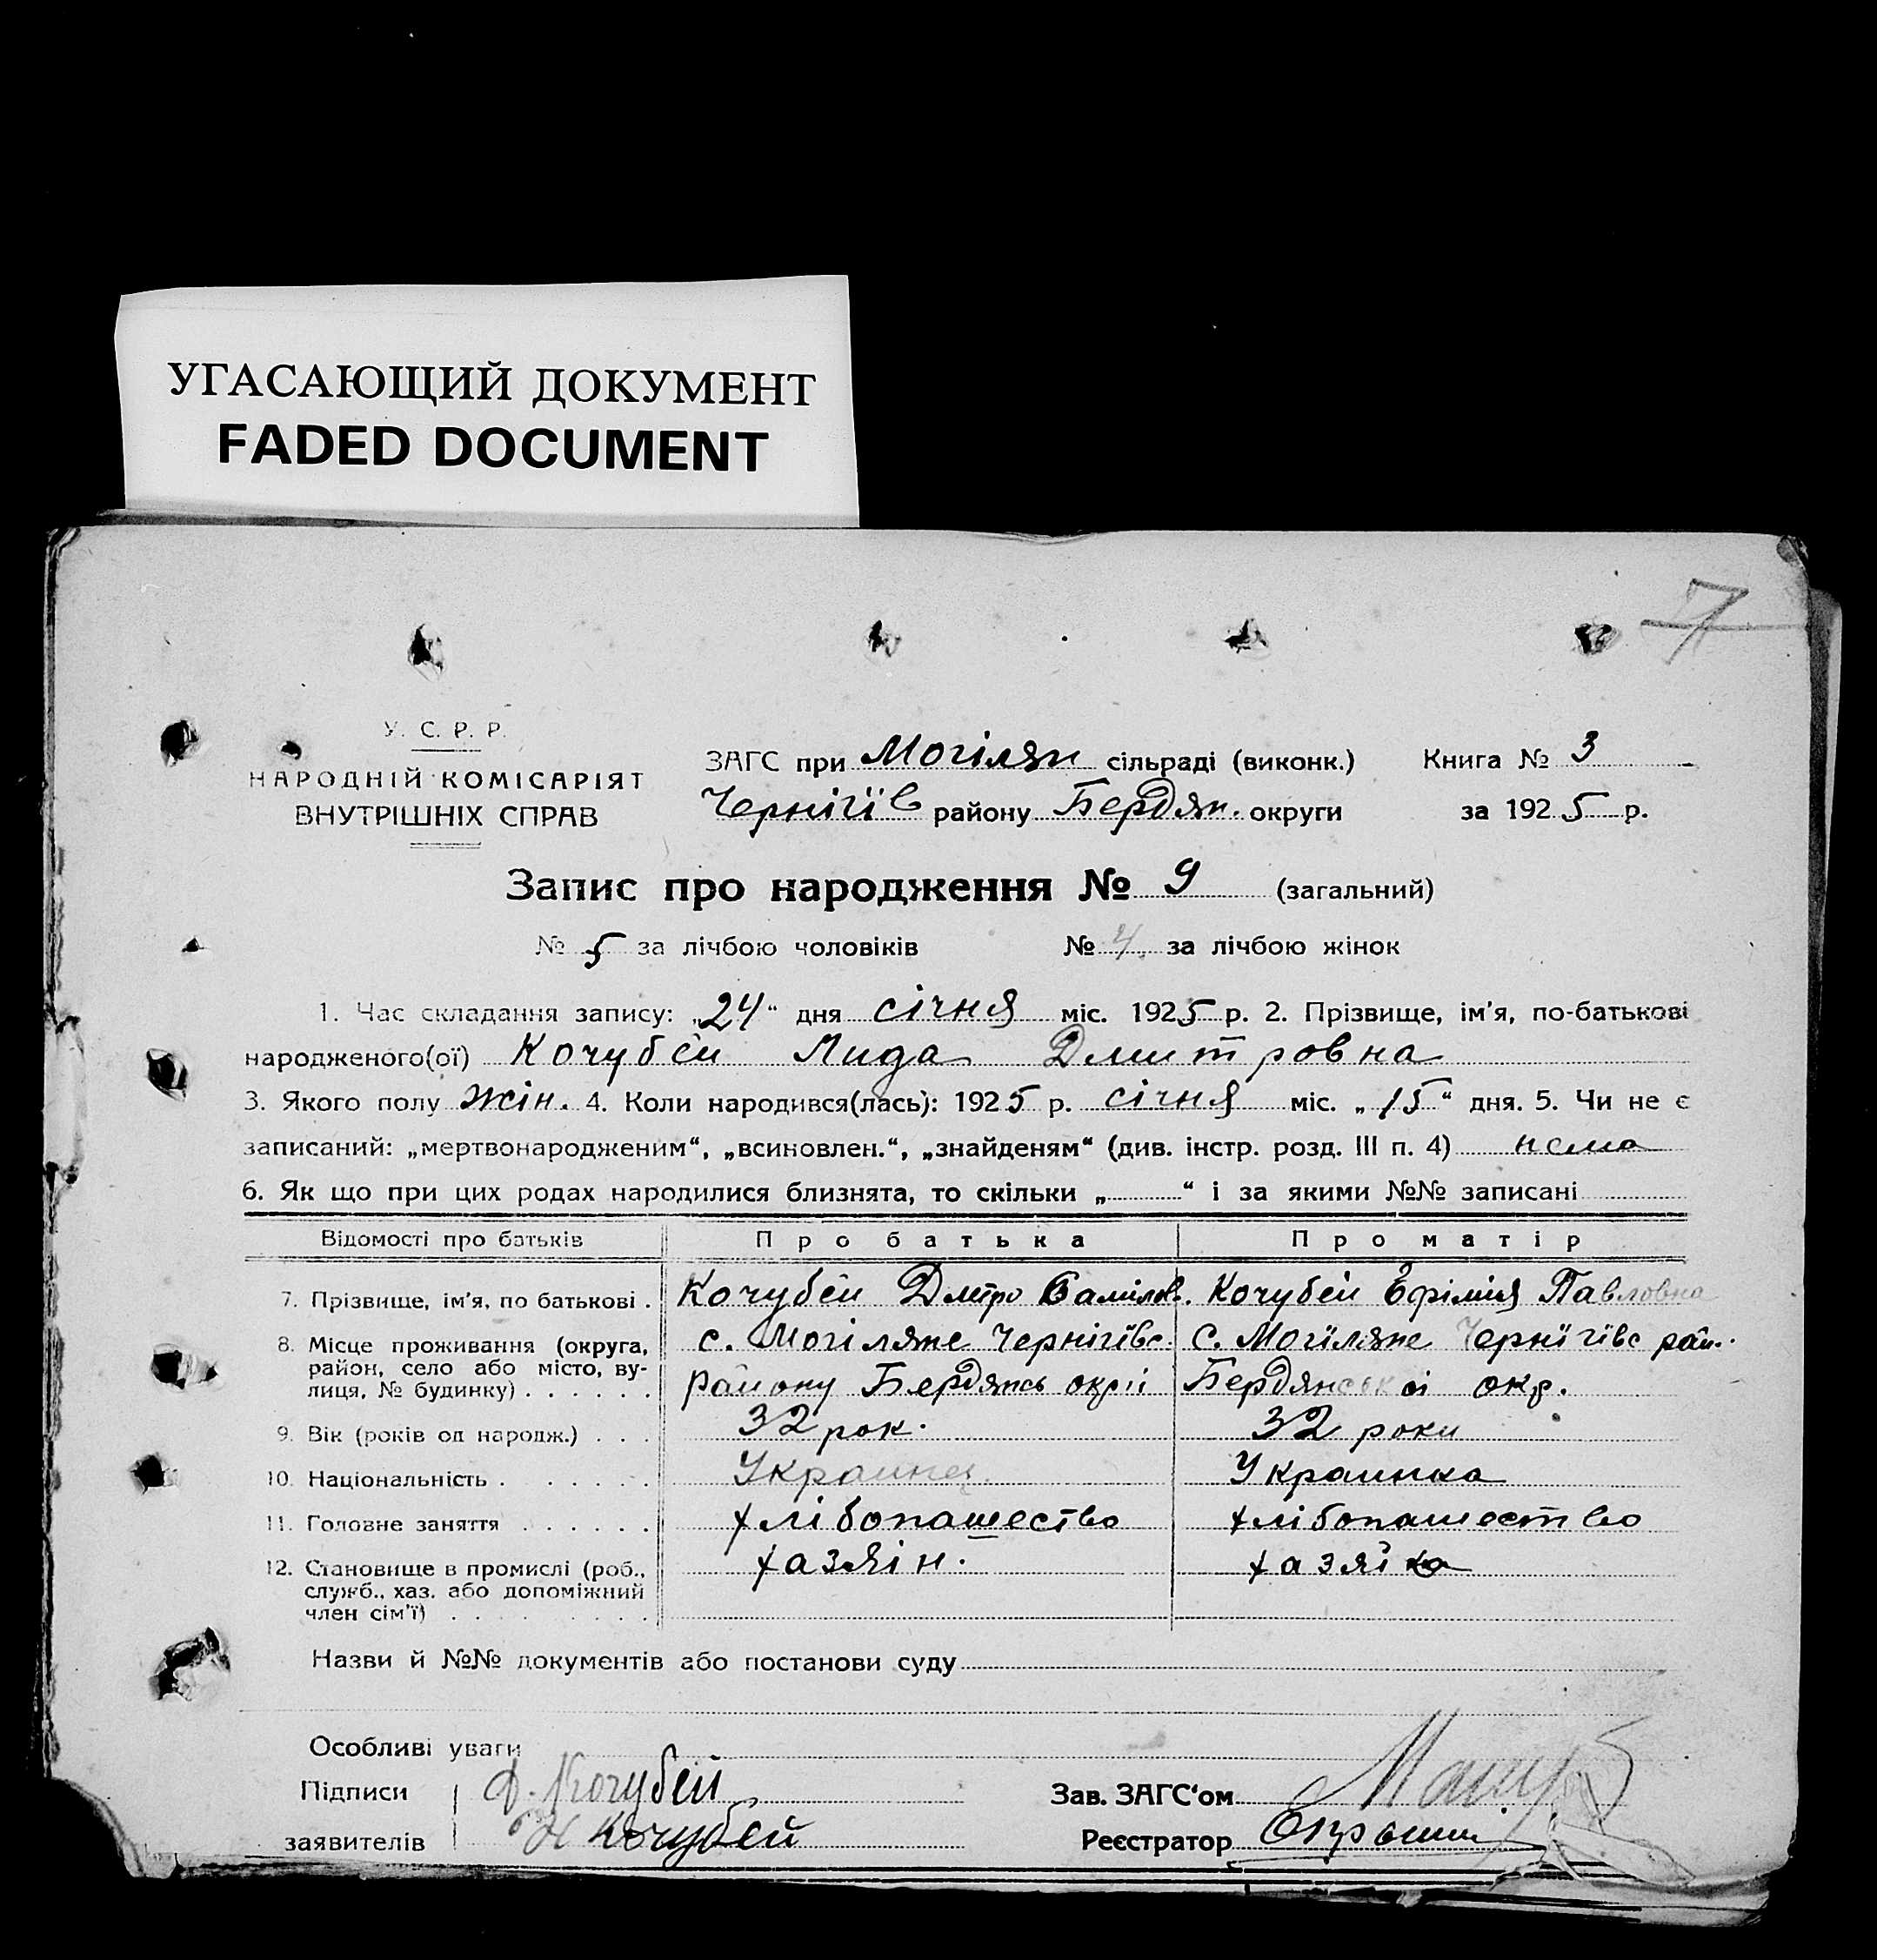 УГАСАЮЩИЙ ДОКУМЕНТ
FADED DOCUMENT
7
У. С. Р. Р.
НАРОДНІЙ КОМІСАРІЯТ
ВНУТРІШНІХ СПРАВ
ЗАГС при Могілян сільраді (виконк.) Книга № 3
Чернігів району Бердян. округи за 1925 р.
Запис про народження № 9 (загальний)
№ 5 за лічбою чоловіків № 4 за лічбою жінок
1. Час складання запису: „24“ дня січня міс. 1925 р. 2. Прізвище, ім'я, по-батькові
народженого(ої) Кочубей Лида Дмитровна
3. Якого полу жін. 4. Коли народився(лась): 1925 р. січня міс. „15“ дня. 5. Чи не є
записаний: „мертвонародженим“, „всиновлен.“, „знайденям“ (див. інстр. розд. III п. 4) нема
6. Як що при цих родах народилися близнята, то скільки „ “ і за якими №№ записані
Відомості про батьків Про батька Про матір
7. Прізвище, ім'я, по батькові . Кочубей Дмитро Самілов. Кочубей Ефімія Павловна
8. Місце проживання (округа, с. Могіляне Чернігівс. С. Могіляне Чернїгївс рай.
район, село або місто, ву-
лиця, № будинку) . . . . . . району Бердянсь окрії Бердянської окр.
9. Вік (років од народж.) . . . 32 рок. 32 роки
10. Національність . . . . . . Украинец Украинка
11. Головне заняття . . . . . . хлібопашество хлібопашество
12. Становище в промислі (роб., хазяін. хазяйка
служб., хаз. або допоміжний
член сім'ї) . . . . . . . . .
Назви й №№ документів або постанови суду
Особливі уваги
Підписи Д. Кочубей Зав. ЗАГС'ом
заявителів Кочубей Реєстратор